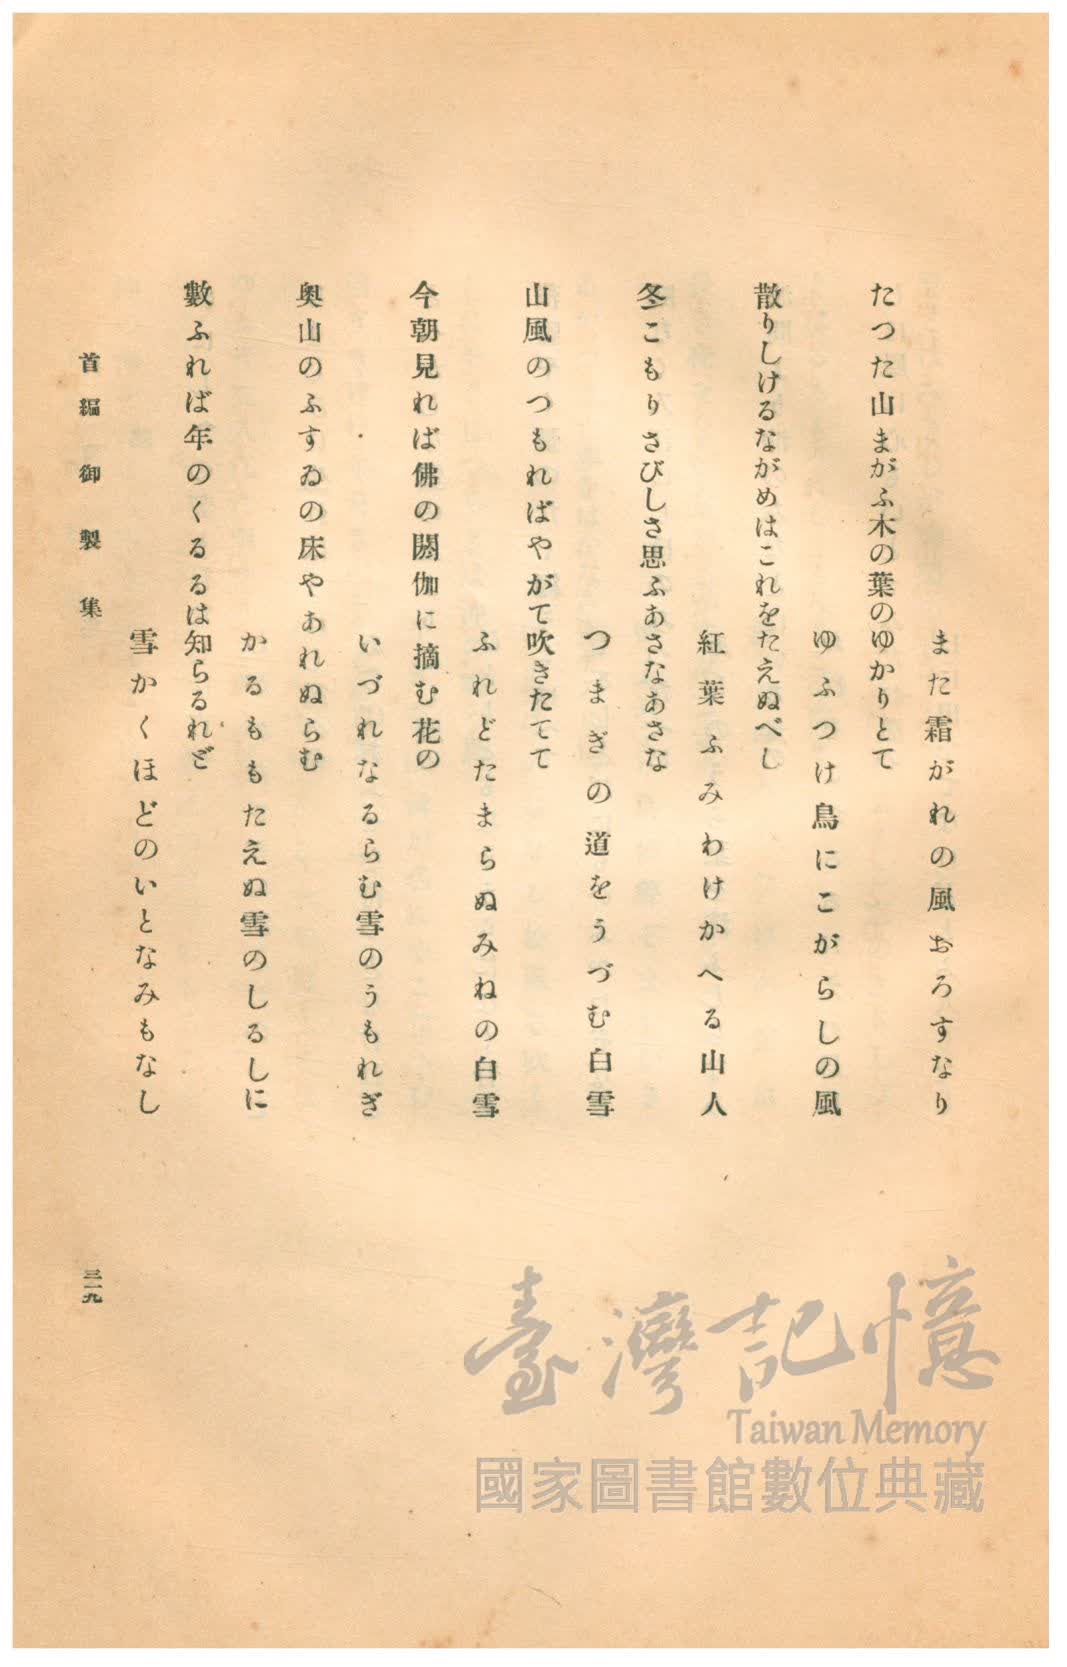 また霜がれの風おろすなり
たつた山まがふ木の葉のゆかりとて
ゆふつけ鳥にこがらしの風
散りしけるながめはこれをたえぬべし
紅葉ふみわけかへる山人
冬こもりさびしさ思ふあさなあさな
つまぎの道をうづむ白雪
山風のつもればやがて吹きたてて
ふれどたまらぬみねの白雪
今朝見れば佛の閼伽に摘む花の
いづれなるらむ雪のうもれぎ
奥山のふすゐの床やあれぬらむ
かるももたえぬ雪のしるしに
數ふれば年のくるるは知らるれど
雪かくほどのいとなみもなし
首編御製集
三一九
臺灣記憶
Taiwan Memory
國家圖書館數位典藏